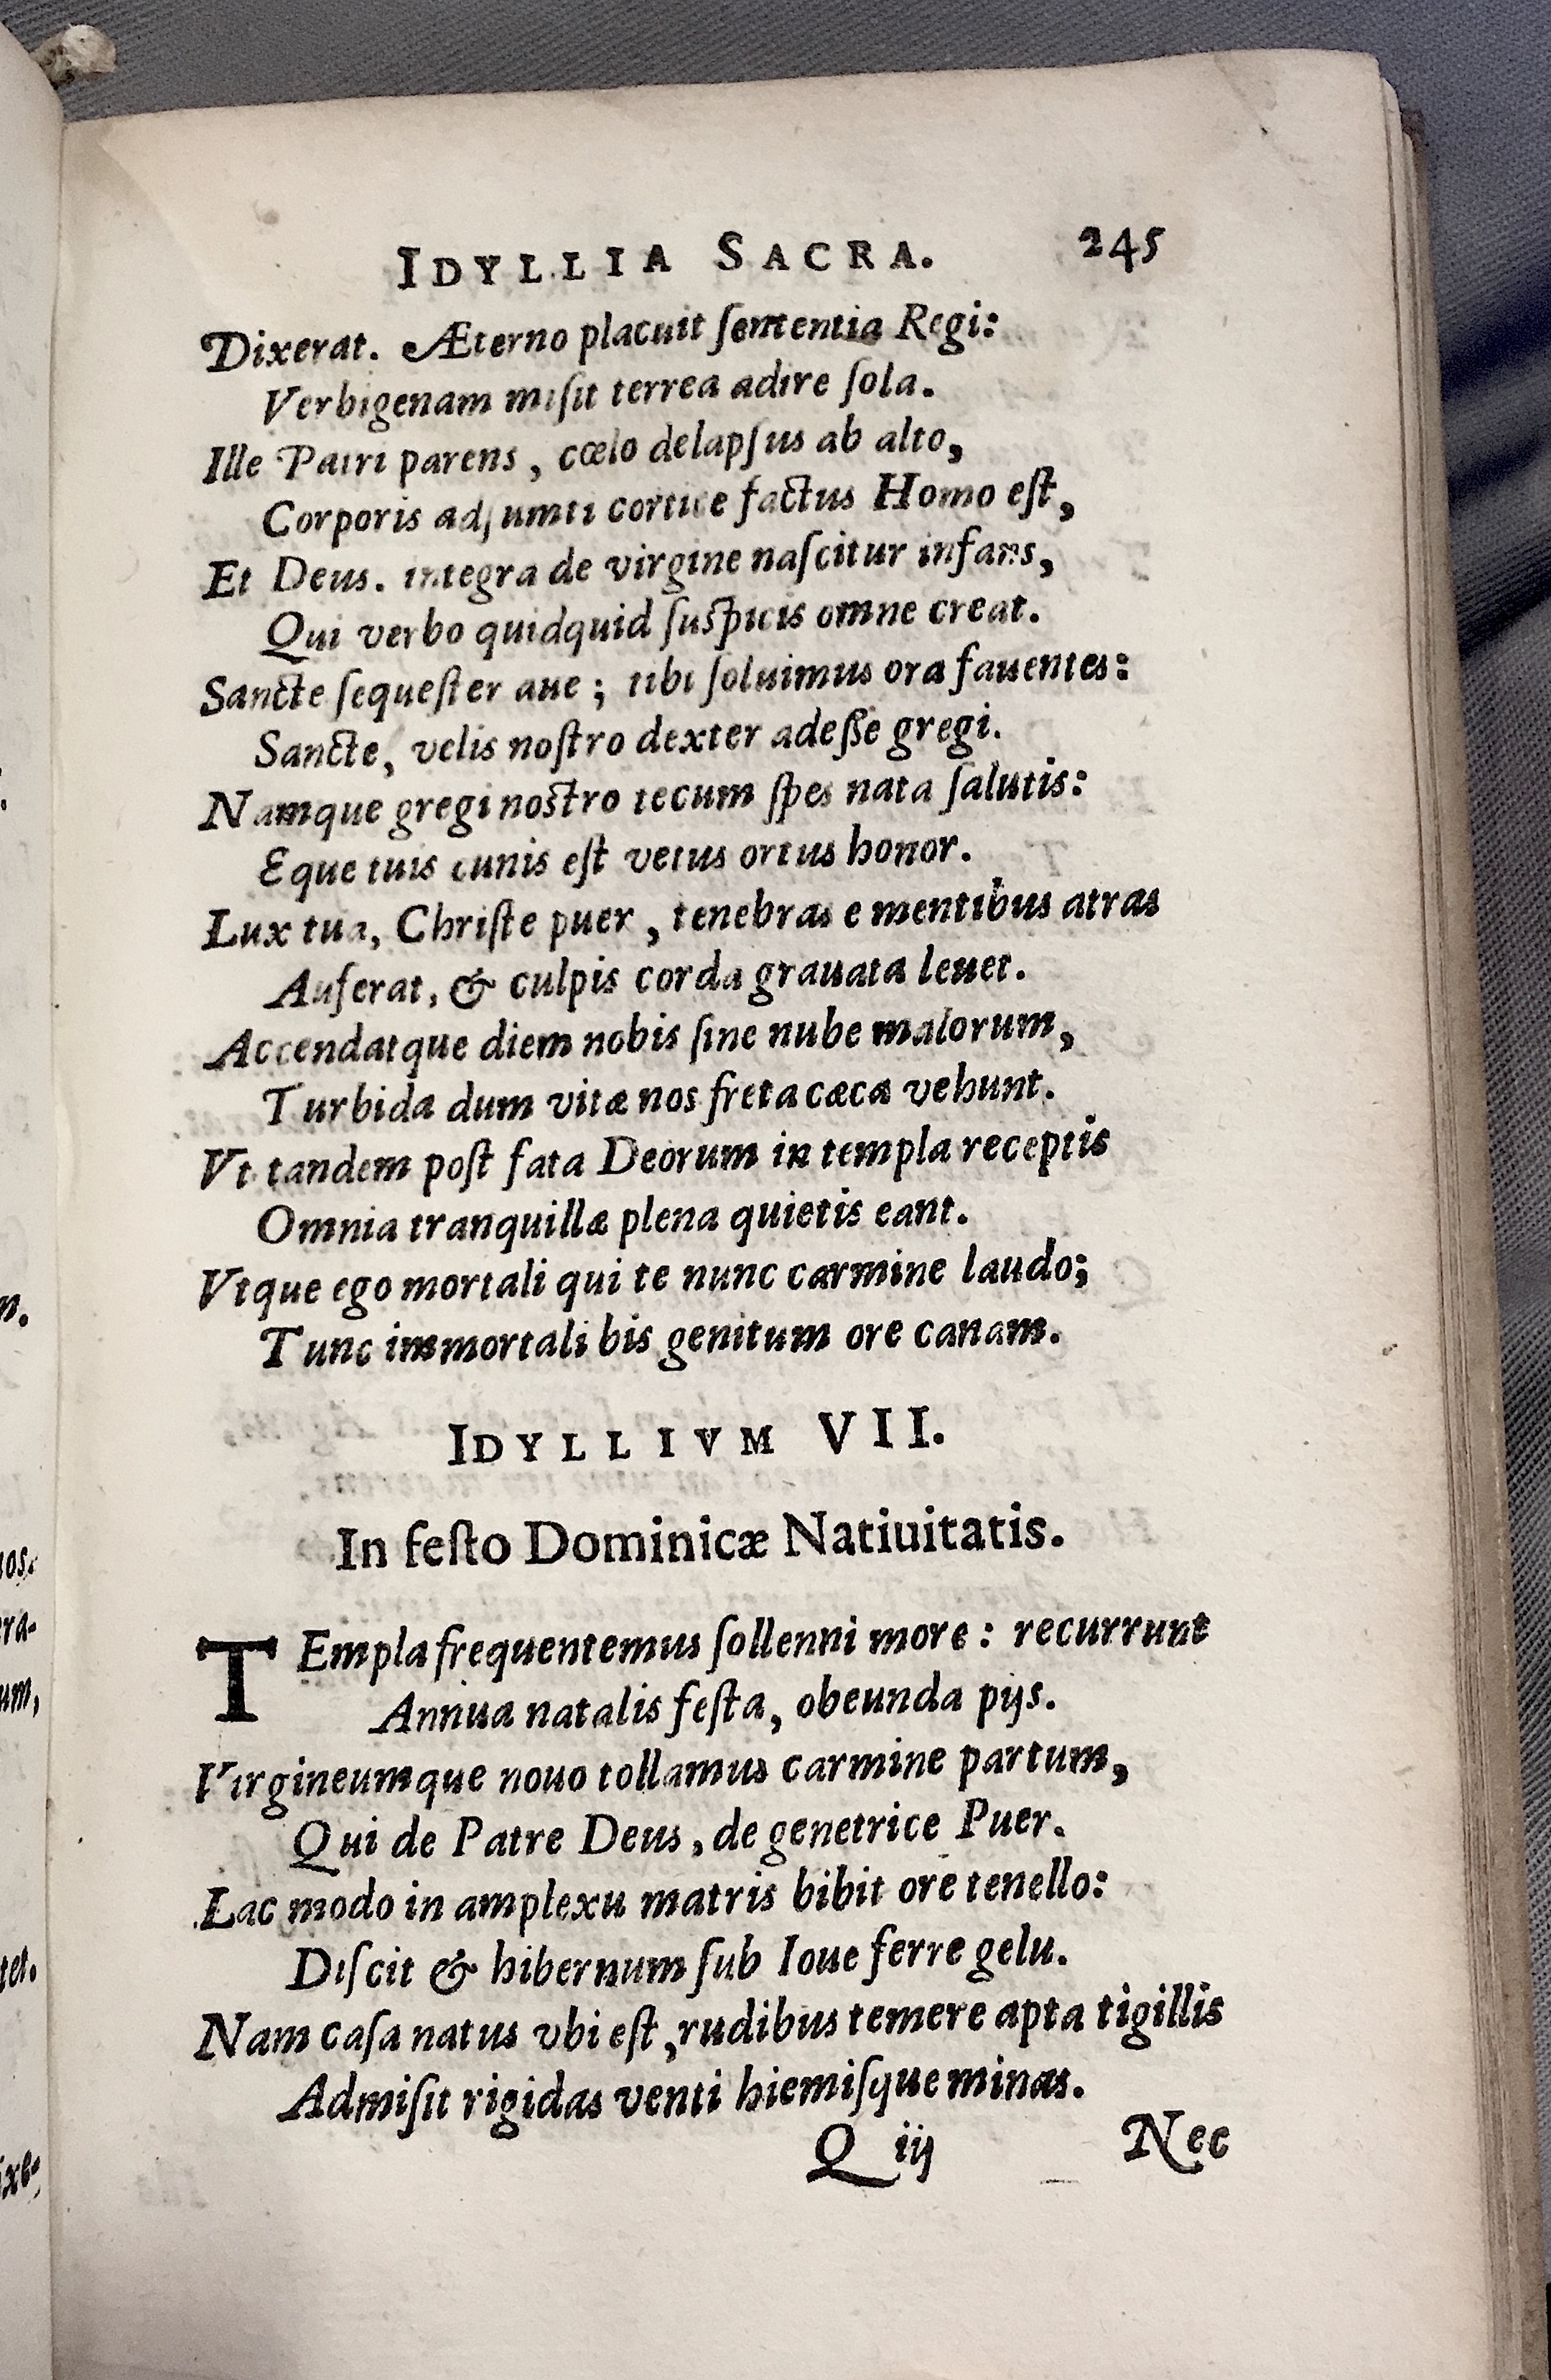 IDYLLIA SACRA. 245
Dixerat. Æterno placuit ſententia Regi:
Verbigenam miſit terrea adire ſola.
Ille Patri parens, cœlo delapſus ab alto,
Corporis adſumti cortice factus Homo eſt,
Et Deus. integra de virgine naſcitur infans,
Qui verbo quidquid ſuſpicis omne creat.
Sancte ſequeſter aue; tibi ſoluimus ora fauentes:
Sancte, velis noſtro dexter adeſſe gregi.
Namque gregi noſtro tecum ſpes nata ſalutis:
Eque tuis cunis eſt vetus ortus honor.
Lux tua, Chriſte puer, tenebras e mentibus atras
Auferat, & culpis corda grauata leuet.
Accendatque diem nobis ſine nube malorum,
Turbida dum vitæ nos freta cæca vehunt.
Vt tandem poſt fata Deorum in templa receptis
Omnia tranquillæ plena quietis eant.
Vtque ego mortali qui te nunc carmine laudo;
Tunc immortali bis genitum ore canam.
IDYLLIVM VII.
In feſto Dominicæ Natiuitatis.
TEmpla frequentemus ſollenni more: recurrunt
Annua natalis feſta, obeunda pijs.
Virgineumque nouo tollamus carmine partum,
Qui de Patre Deus, de genetrice Puer.
Lac modo in amplexu matris bibit ore tenello:
Diſcit & hibernum ſub Ioue ferre gelu.
Nam caſa natus vbi eſt, rudibus temere apta tigillis
Admiſit rigidas venti hiemiſque minas.
Q iij Nec